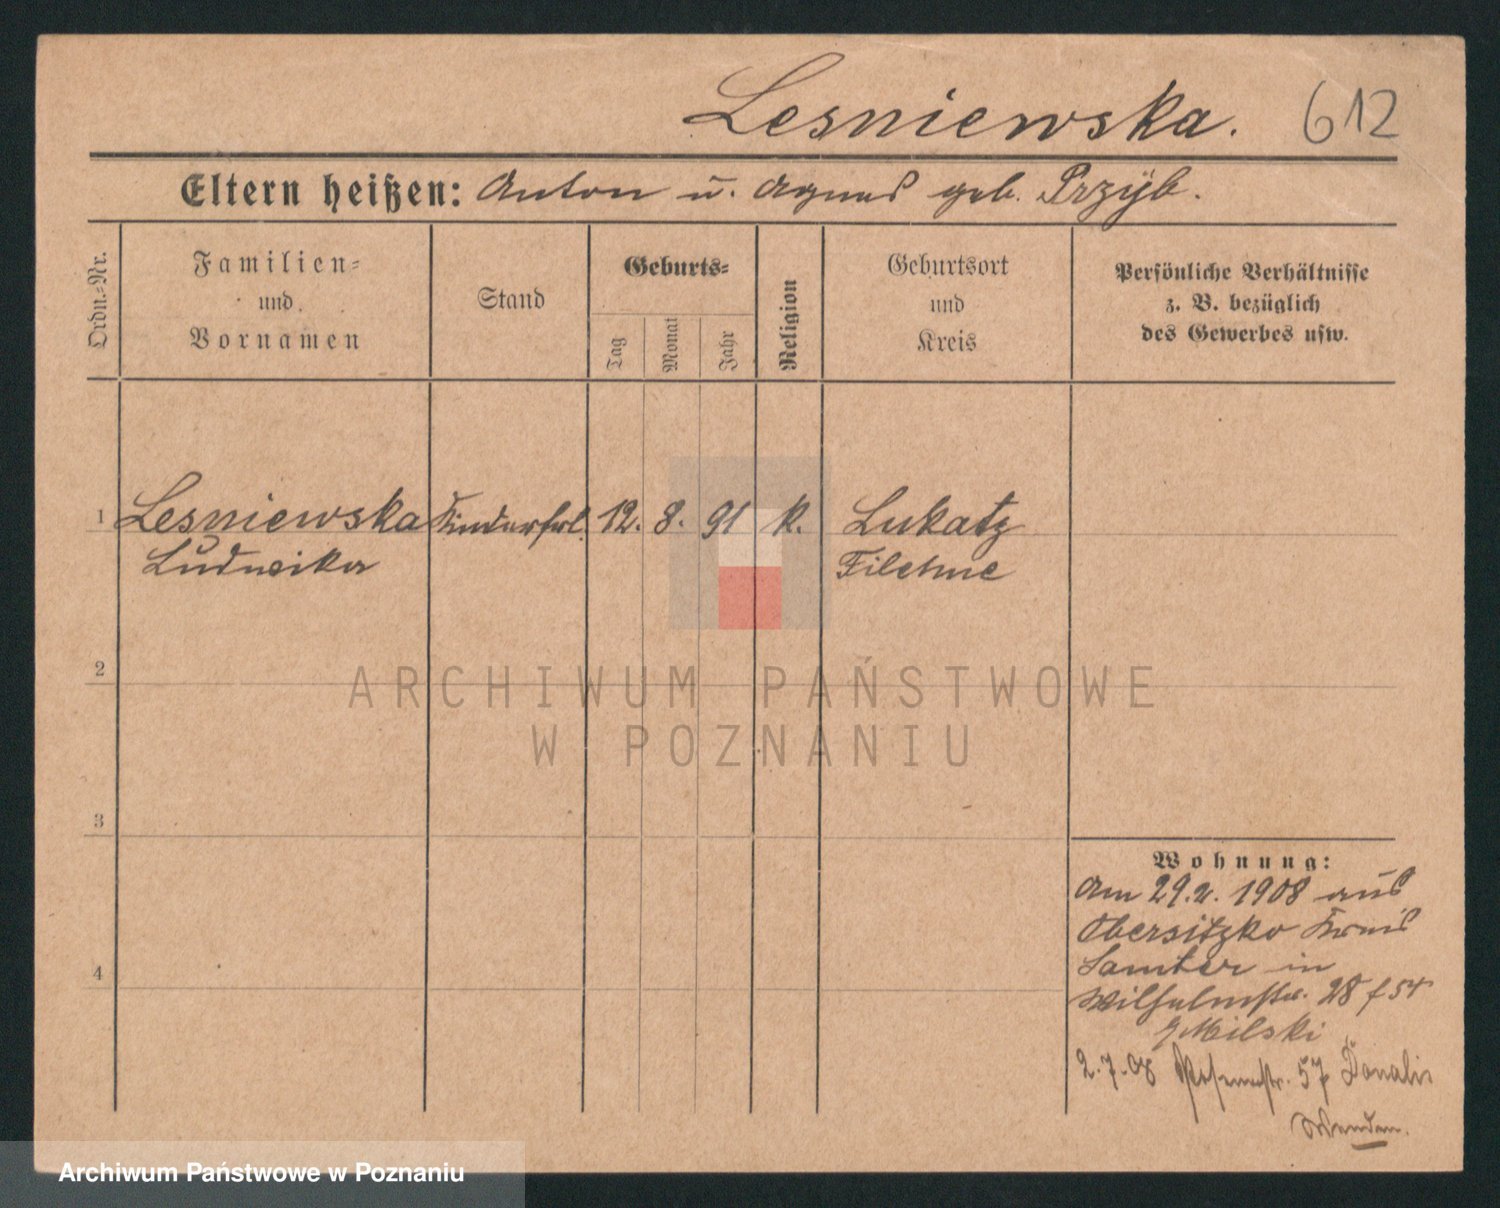 Lesniewska. 612
Eltern heißen: Anton u. Agnes geb. Przyb.
Ordn.-Nr.
Familien-
und
Vornamen
Stand
Geburts-
Tag
Monat
Jahr
Religion
Geburtsort
und
Kreis
Persönliche Verhältnisse
z. B. bezüglich
des Gewerbes usw.
1 Lesniewska Kinderfrl. 12. 8. 91 k. Lukatz
Ludwika Filehne
2
3
4
Wohnung:
Am 29.2. 1908 aus
Obersitzko Kreis
Samter in
Wilhelmstr. 28
Milski
2.7.08 57
ARCHIWUM PAŃSTWOWE
W POZNANIU
Archiwum Państwowe w Poznaniu